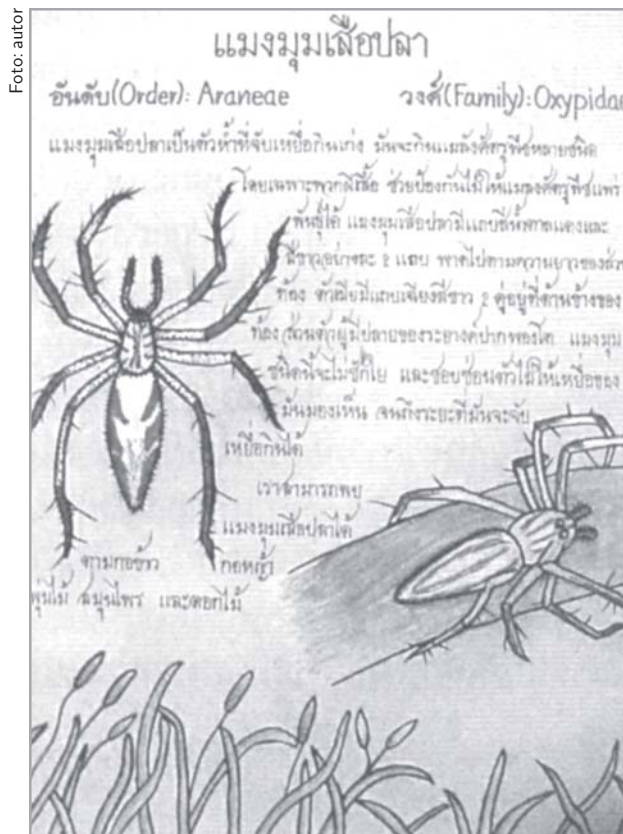 Foto: autor
แมงมุมเสือปลา
อันดับ(Order): Araneae วงศ์(Family): Oxypidae
แมงมุมเสือปลาเป็นตัวห้ำที่จับเหยื่อกินเก่ง มันจะกินแมลงศัตรูพืชหลายชนิด
โดยเฉพาะพวกผีเสื้อ ช่วยป้องกันไม่ให้แมลงศัตรูพืชแพร่
พันธุ์ได้ แมงมุมเสือปลามีแถบสีน้ำตาลแดงและ
สีขาวอย่างละ 2 แถบ พาดไปตามความยาวของส่วน
ท้อง ตัวเมียมีแถบเฉียงสีขาว 2 คู่อยู่ที่ด้านข้างของ
ท้อง ส่วนตัวผู้มีปลายของระยางค์ปากพองโต แมงมุม
ชนิดนี้จะไม่ชักใย และชอบซ่อนตัวไม่ให้เหยื่อของ
มันมองเห็น จนถึงระยะที่มันจะจับ
เหยื่อกินได้
เราสามารถพบ
แมงมุมเสือปลาได้
ตามกอข้าว กอหญ้า
พุ่มไม้ สมุนไพร และดอกไม้